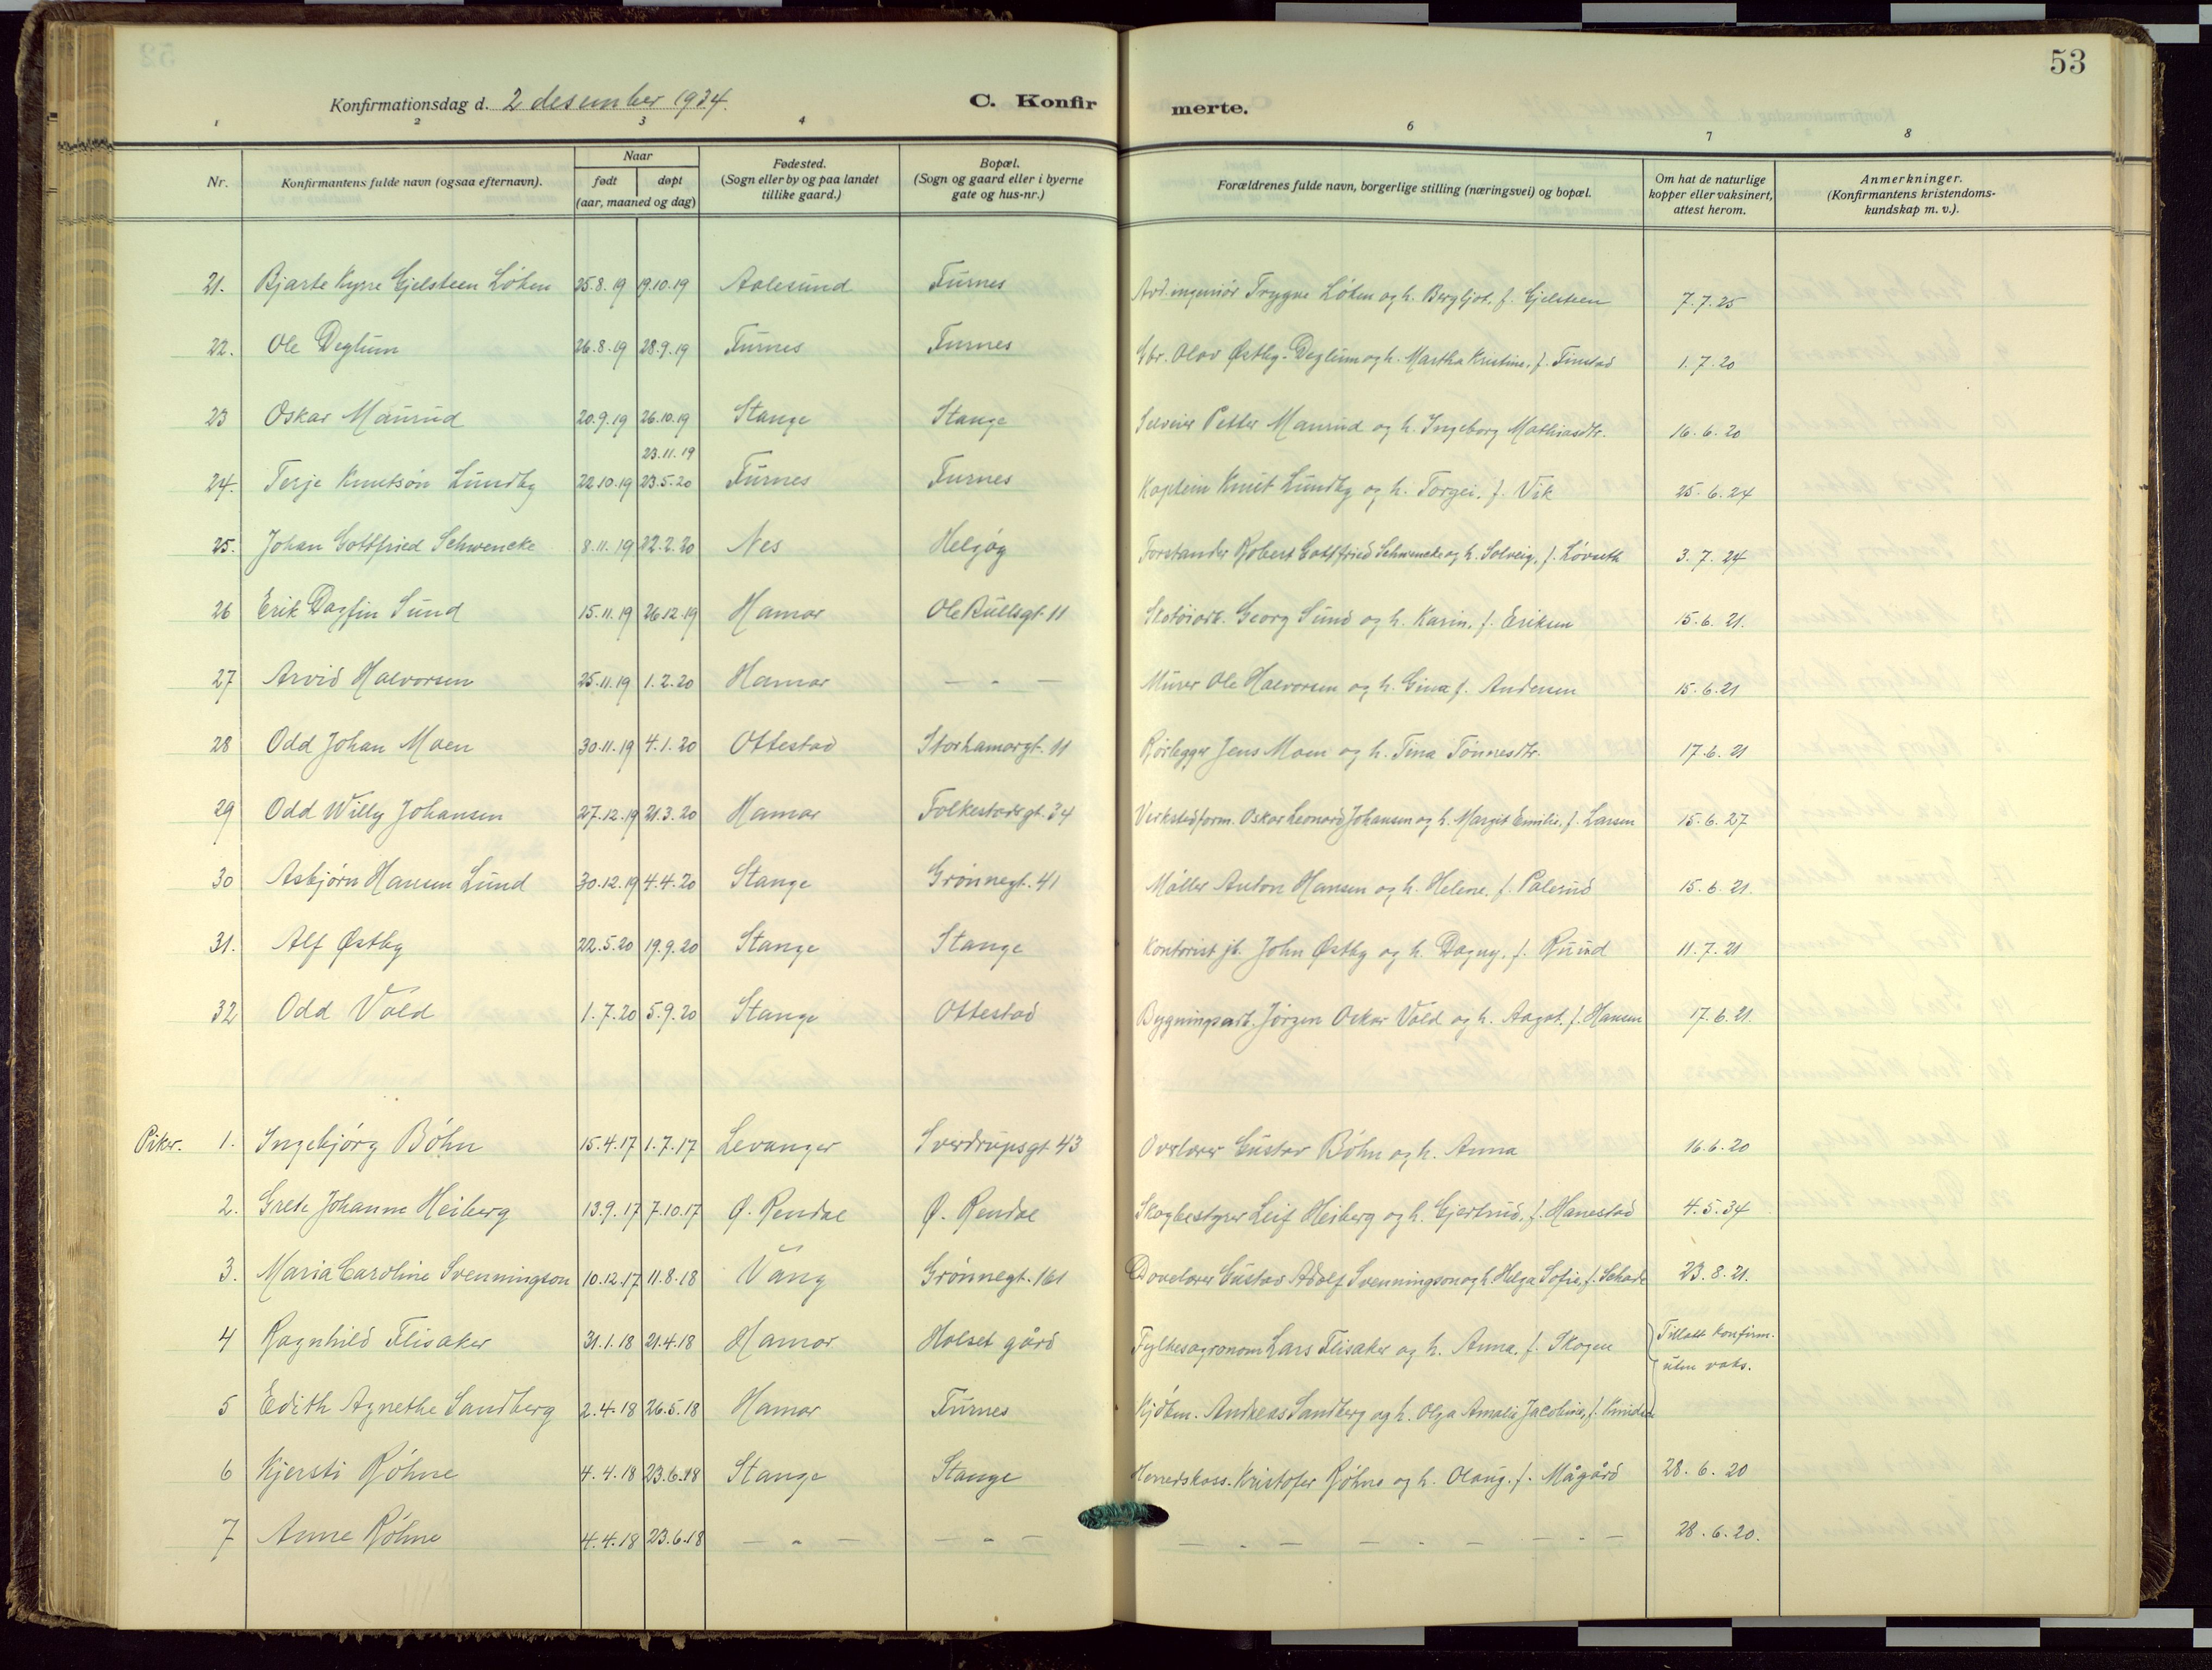 53
Konfirmationsdag d. 2 desember 1934.
C. Konfirmerte.
1 2 3 4 6 7 8
Nr. Konfirmantens fulde navn (ogsaa efternavn). Naar født døpt (aar, maaned og dag) Fødested. (Sogn eller by og paa landet tillike gaard.) Bopæl. (Sogn og gaard eller i byerne gate og hus-nr.) Forældrenes fulde navn, borgerlige stilling (næringsvei) og bopæl. Om hat de naturlige kopper eller vaksinert, attest herom. Anmerkninger. (Konfirmantens kristendoms-kundskap m. v.).
21. Bjarte Kyrre Gjelsteen Løken 25.8.19 19.10.19 Aalesund Furnes Avd. ingeniør Trygve Løken og h. Bergljot, f. Gjelsteen 7.7.25
22. Ole Deglum 26.8.19 28.9.19 Furnes Furnes Gbr. Olav Østby-Deglum og h. Martha Kristine, f. Finstad 1.7.20
23 Oskar Maurud 20.9.19 26.10.19 Stange Stange Selveier Petter Maurud og h. Ingeborg Mathiasdtr. 16.6.20
23.11.19
24. Terje Knutsøn Lundby 22.10.19 23.5.20 Furnes Furnes Kaptein Knut Lundby og h. Torgei, f. Vik 25.6.24
25. Johan Gottfried Schwencke 8.11.19 22.2.20 Nes Helgøy Forstander Robert Gottfried Schwencke og h. Solveig, f. Løvseth 3.7.24
26 Erik Dagfin Sund 15.11.19 26.12.19 Hamar Ole Bullsgt. 11 Skotøiarb. Georg Sund og h. Karin, f. Eriksen 15.6.21.
27 Arvid Halvorsen 25.11.19 1.2.20 Hamar — " — Murer Ole Halvorsen og h. Gina f. Andersen 15.6.21
28 Odd Johan Moen 30.11.19 4.1.20 Ottestad Storhamargt. 11 Rørlegger Jens Moen og h. Tina Tønnesdtr. 17.6.21
29 Odd Willy Johansen 27.12.19 21.3.20 Hamar Folkestadsgt. 34 Verkstedform. Oskar Leonard Johansen og h. Margit Emilie, f. Larsen 15.6.27
30 Asbjørn Hansen Lund 30.12.19 4.4.20 Stange Grønnegt. 41 Møller Anton Hansen og h. Helene, f. Palerud 15.6.21.
31. Alf Østby 22.5.20 19.9.20 Stange Stange Kontorist jb. John Østby og h. Dagny, f. Ruud 11.7.21
32 Odd Vold 1.7.20 5.9.20 Stange Ottestad Bygningsarb. Jørgen Oskar Vold og h. Aagot, f. Hansen 17.6.21.
Piker. 1. Ingebjørg Bøhn 15.4.17 1.7.17 Levanger Sverdrupsgt 43 Overlærer Gustav Bøhn og h. Anna 16.6.20
2. Grete Johanne Heiberg 13.9.17 7.10.17 Ø. Rendal Ø. Rendal Skogbestyrer Leif Heiberg og h. Gjertrud, f. Hanestad 4.5.34
3. Maria Caroline Svenningson 10.12.17 11.8.18 Vang Grønnegt. 161 Døvelærer Gustav Adolf Svenningson og h. Helga Sofie, f. Schade 23.8.21.
4 Ragnhild Flisaker 31.1.18 21.4.18 Hamar Holset gård Fylkesagronom Lars Flisaker og h. Anna, f. Skogen Tillatt konfirm. uten vaks.
5 Edith Agnethe Sandberg 2.4.18 26.5.18 Hamar Furnes Kjøbm. Andreas Sandberg og h. Olga Amalie Jacobine, f. Knudsen
6 Kjersti Røhne 4.4.18 23.6.18 Stange Stange Herredskass. Kristofer Røhne og h. Olaug, f. Mågård 28.6.20
7 Anne Røhne 4.4.18 23.6.18 — " — — " — — " — — " — — " — 28.6.20.